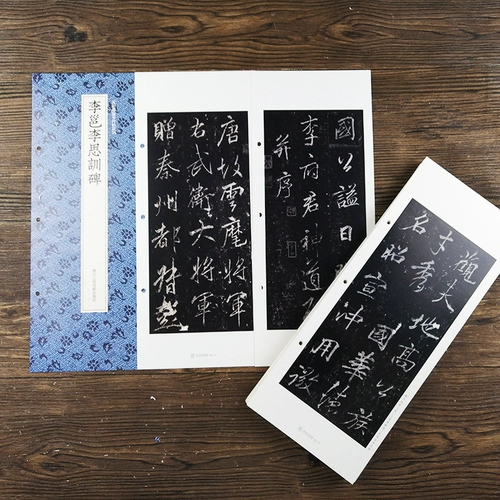 李邕李思訓碑
唐故雲麾將軍
右武衛大將軍
贈秦州都督
國公謚曰
李府君神道
并序
觀夫地高公族
才秀國華德
名昭宣沖用微